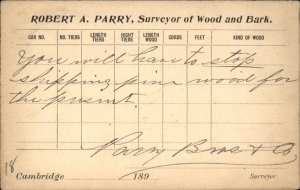 ROBERT A. PARRY, Surveyor of Wood and Bark.
CAR NO. NO. TIERS LENGTH TIERS HIGHT TIERS LENGTH WOOD CORDS FEET KIND OF WOOD
You will have to stop
shipping pine wood for
the present.
Parry Bros & Co
18
Cambridge 189 Surveyor.